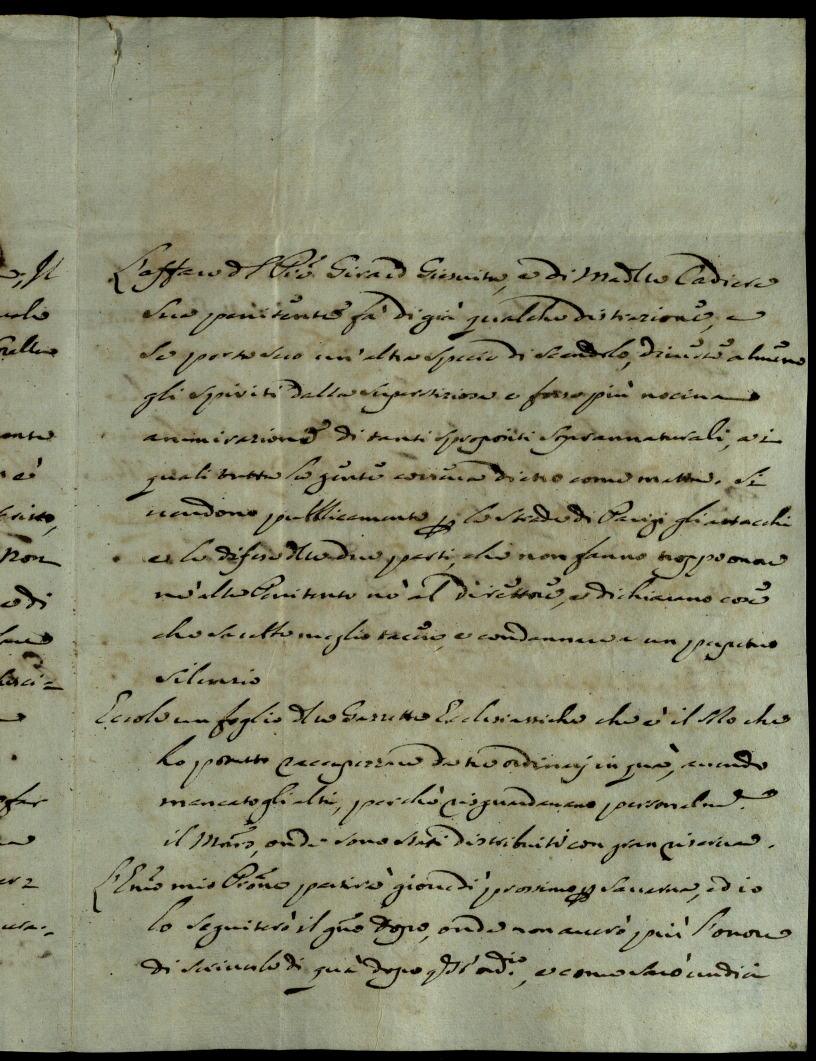 L'affare d'l P̃re Girard Giesuita, e di Madlle Cadiere
sua penitente fà di già qualche distrazione, e
se porta seco un'altra specie di scandolo, divierte almeno
gli spiriti dalla superstiziosa e forse più nociua
ammirazione di tanti spropositi soprannaturali, a i
quali tutta la gente correua dietro come matta. Si
uendono pubblicamente p le strade di Parigi gli attacchi
e le difese dlle due parti, che non fanno troppo onore
nè alla Penitente nè al direttore, e dichiarano cose
che sarebbe meglio tacere, e condannare a un perpetuo
silenzio
Eccole un foglio dlle Gazzette Ecclesiastiche che è il solo che
ho potuto raccapezzare da tre ordinarj in quà, auendo
mancato gli altri, perchè risguardauano personalmte
il Mãro, onde sono stati distribuiti con gran riserua.
L'Emo mio Prone partirà giouedì prossimo p Sauerna, ed io
lo seguiterò il gno dopo, onde non auerò più l'onore
di scriuerle di quà dopo qst'ordio, e come sarò undici
e, Il
Non
e di